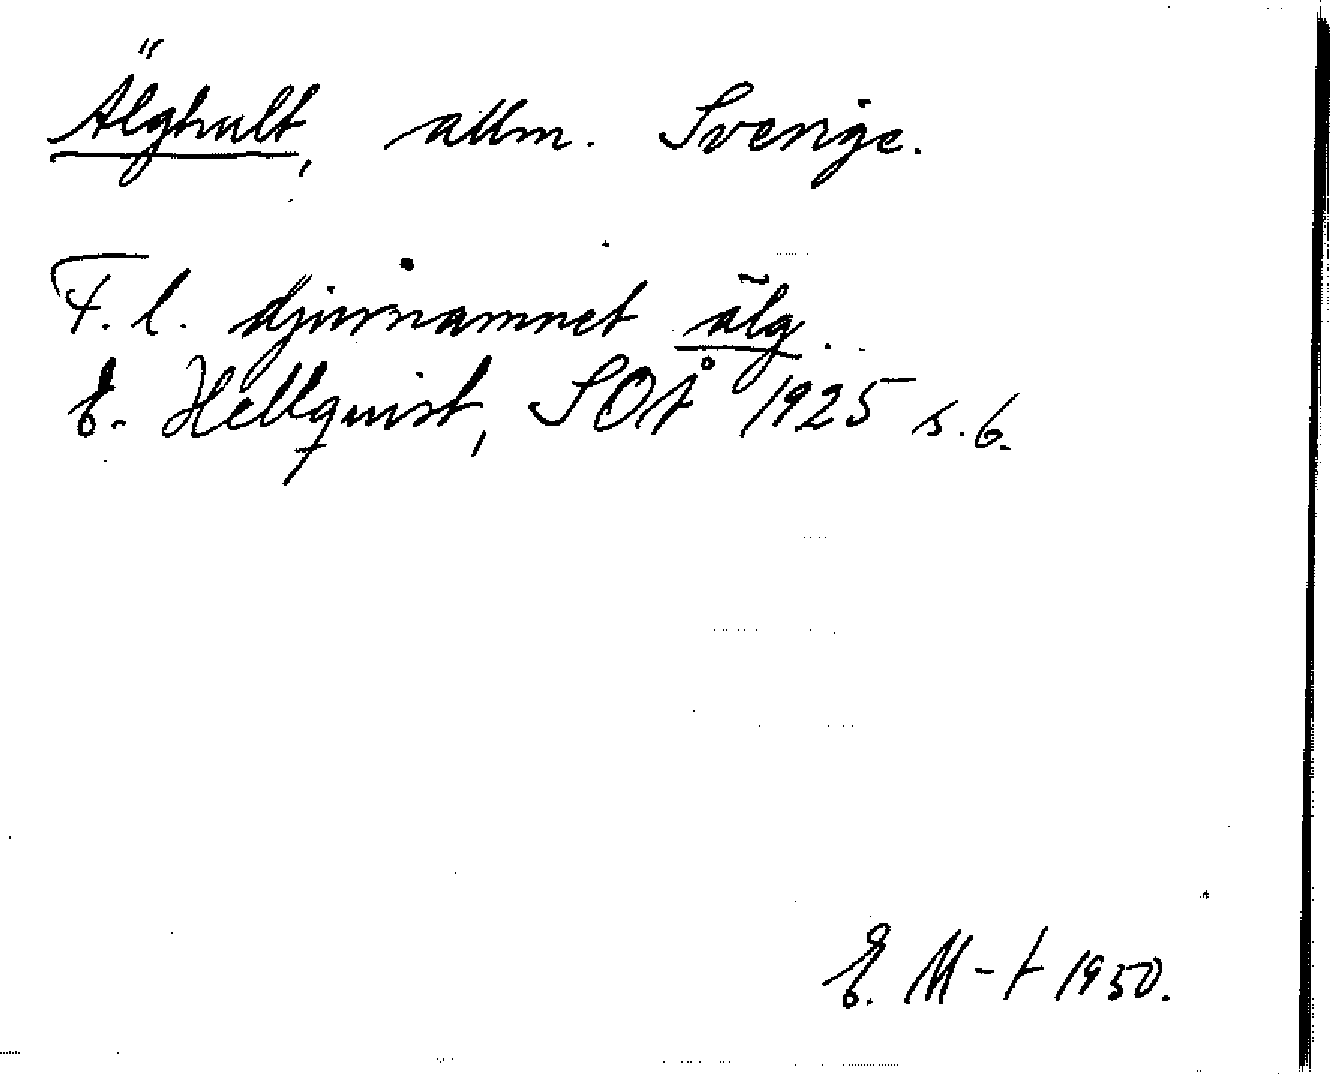 Älghult, allm. Sverige.
F. l. djurnamnet älg.
E. Hellquist, SOÅ 1925 s. 6.
E. M-t 1950.